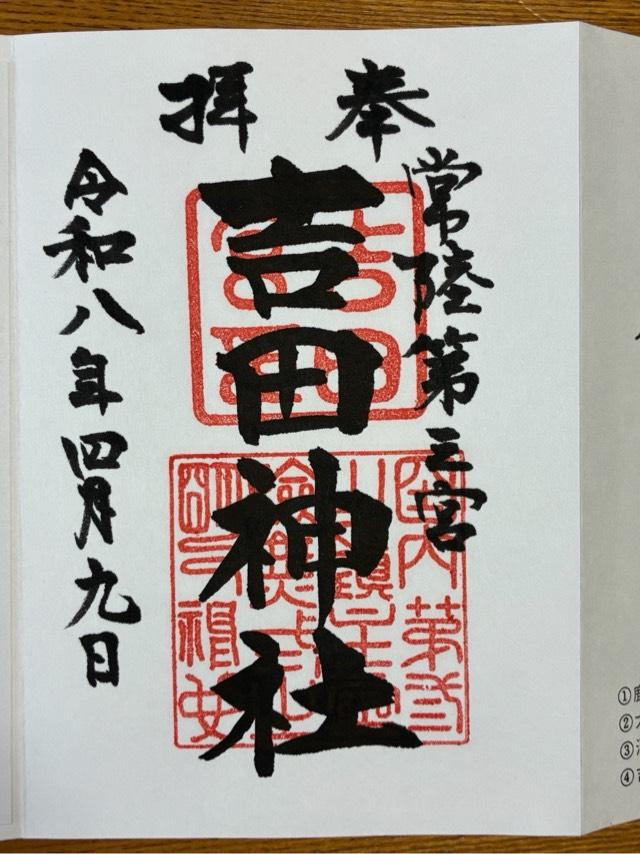 奉拝
常陸第三宮
吉田神社
令和八年四月九日
①
②
③
④